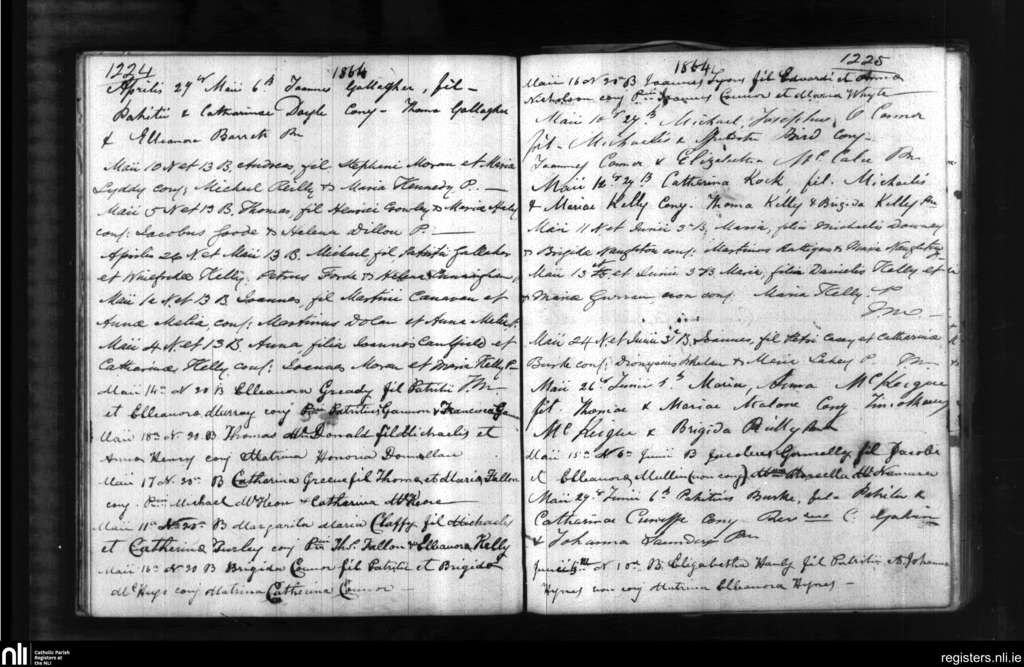 1224
1864
Aprilis 29 Maii 6th Joannes Gallagher, fil-
Patritii & Catharinae Doyle Conj- Thoma Gallagher
& Elleanora Barrett Pn
Maii 10 N et 13 B. Andreas, fil Stepheni Moran et Maria
Lyddy conj; Michael Reilly & Maria Kennedy P.
Maii 5 N et 13 B. Thomas, fil Henrici Crowley & Maria
conj: Jacobus Goode & Helena Dillon P:
Aprilis 24 N et Maii 13 B. Michael fil Patritii Gallaher
et Winefrede Kelly. Petrus Forde & Helena Cunningham
Maii 10 N. et 13 B Joannes, fil Martini Canavan et
Anna Melia, conj: Martinus Dolan et Anna Melia P.
Maii 4 N. et 13 B. Anna, filia Joannis Caulfield et
Catharina Kelly conj: Joannes Moran et Maria Kelly P
Maii 14th N 20 B Elleanora Gready fil Patritii
et Elleanora Murray conj Patritius Gannon & Francisca
Maii 18th N. 20 B Thomas McDonald fil Michaelis et
Anna Henry conj Matrina Honoria Donnellan
Maii 17 N. 20 B Catharina Greene fil Thoma et Maria Fallon
conj Michael McKeon & Catherina McKeone
Maii 11th N 20th B Margarita Maria Claffy fil Michaelis
et Catherina Turley conj Ptn Ths. Fallon & Elleanora Kelly
Maii 16th N 20 B Brigida Connor fil Patritii et Brigida
McHugo conj Matrina Catherina Connor
1864
1225
Maii 16 N 20 B Joannes Lyons fil Edwardi et Anna
Nicholson conj Joannes Connor et Maria Whyte
Maii 10 29th Michael Josephus O Connor
fil- Michaelis & Bird Conj-
Joannes Connor & Elizabetha McCabe Pn
Maii 12 29 B Catherina Rock, fil. Michaelis
& Mariae Kelly Conj. Thoma Kelly & Brigida Kelly Pn
Maii 11 N et Junii 3 B, Maria, filia Michaelis Downey
& Brigida Naughton conj: Martinus & Maria Naughton
Maii 13 et Junii 3 B Maria, filia Danielis Kelly et
Maria Curran, non conj. Maria Kelly P
Maii 24 N et Junii 3 B, Joannes, fil Petri Casey et Catharina
Burke conj; Dionysius Whelan & Maria Leahy P.
Maii 26 Junii 5th Maria Anna McKeigue
fil. Thomae & Mariae Malone Conj Timotheus
McKeigue & Brigida Reilly Pn
Maii 15th N 6th Junii B Jacobus Gormelly fil Jacobi
et Elleanora Mullin (non conj) McNamara
Maii 29 Junii 6th Patritius Burke, fil- Patritii &
Catherinae Cunniffe Conj
& Johanna Saunders Pn
Junii N 10th B Elizabetha Hanly fil Patritii & Johanna
Hynes non conj Matrina Elleanora Hynes
nli
Catholic Parish
Registers at
the NLI
registers.nli.ie